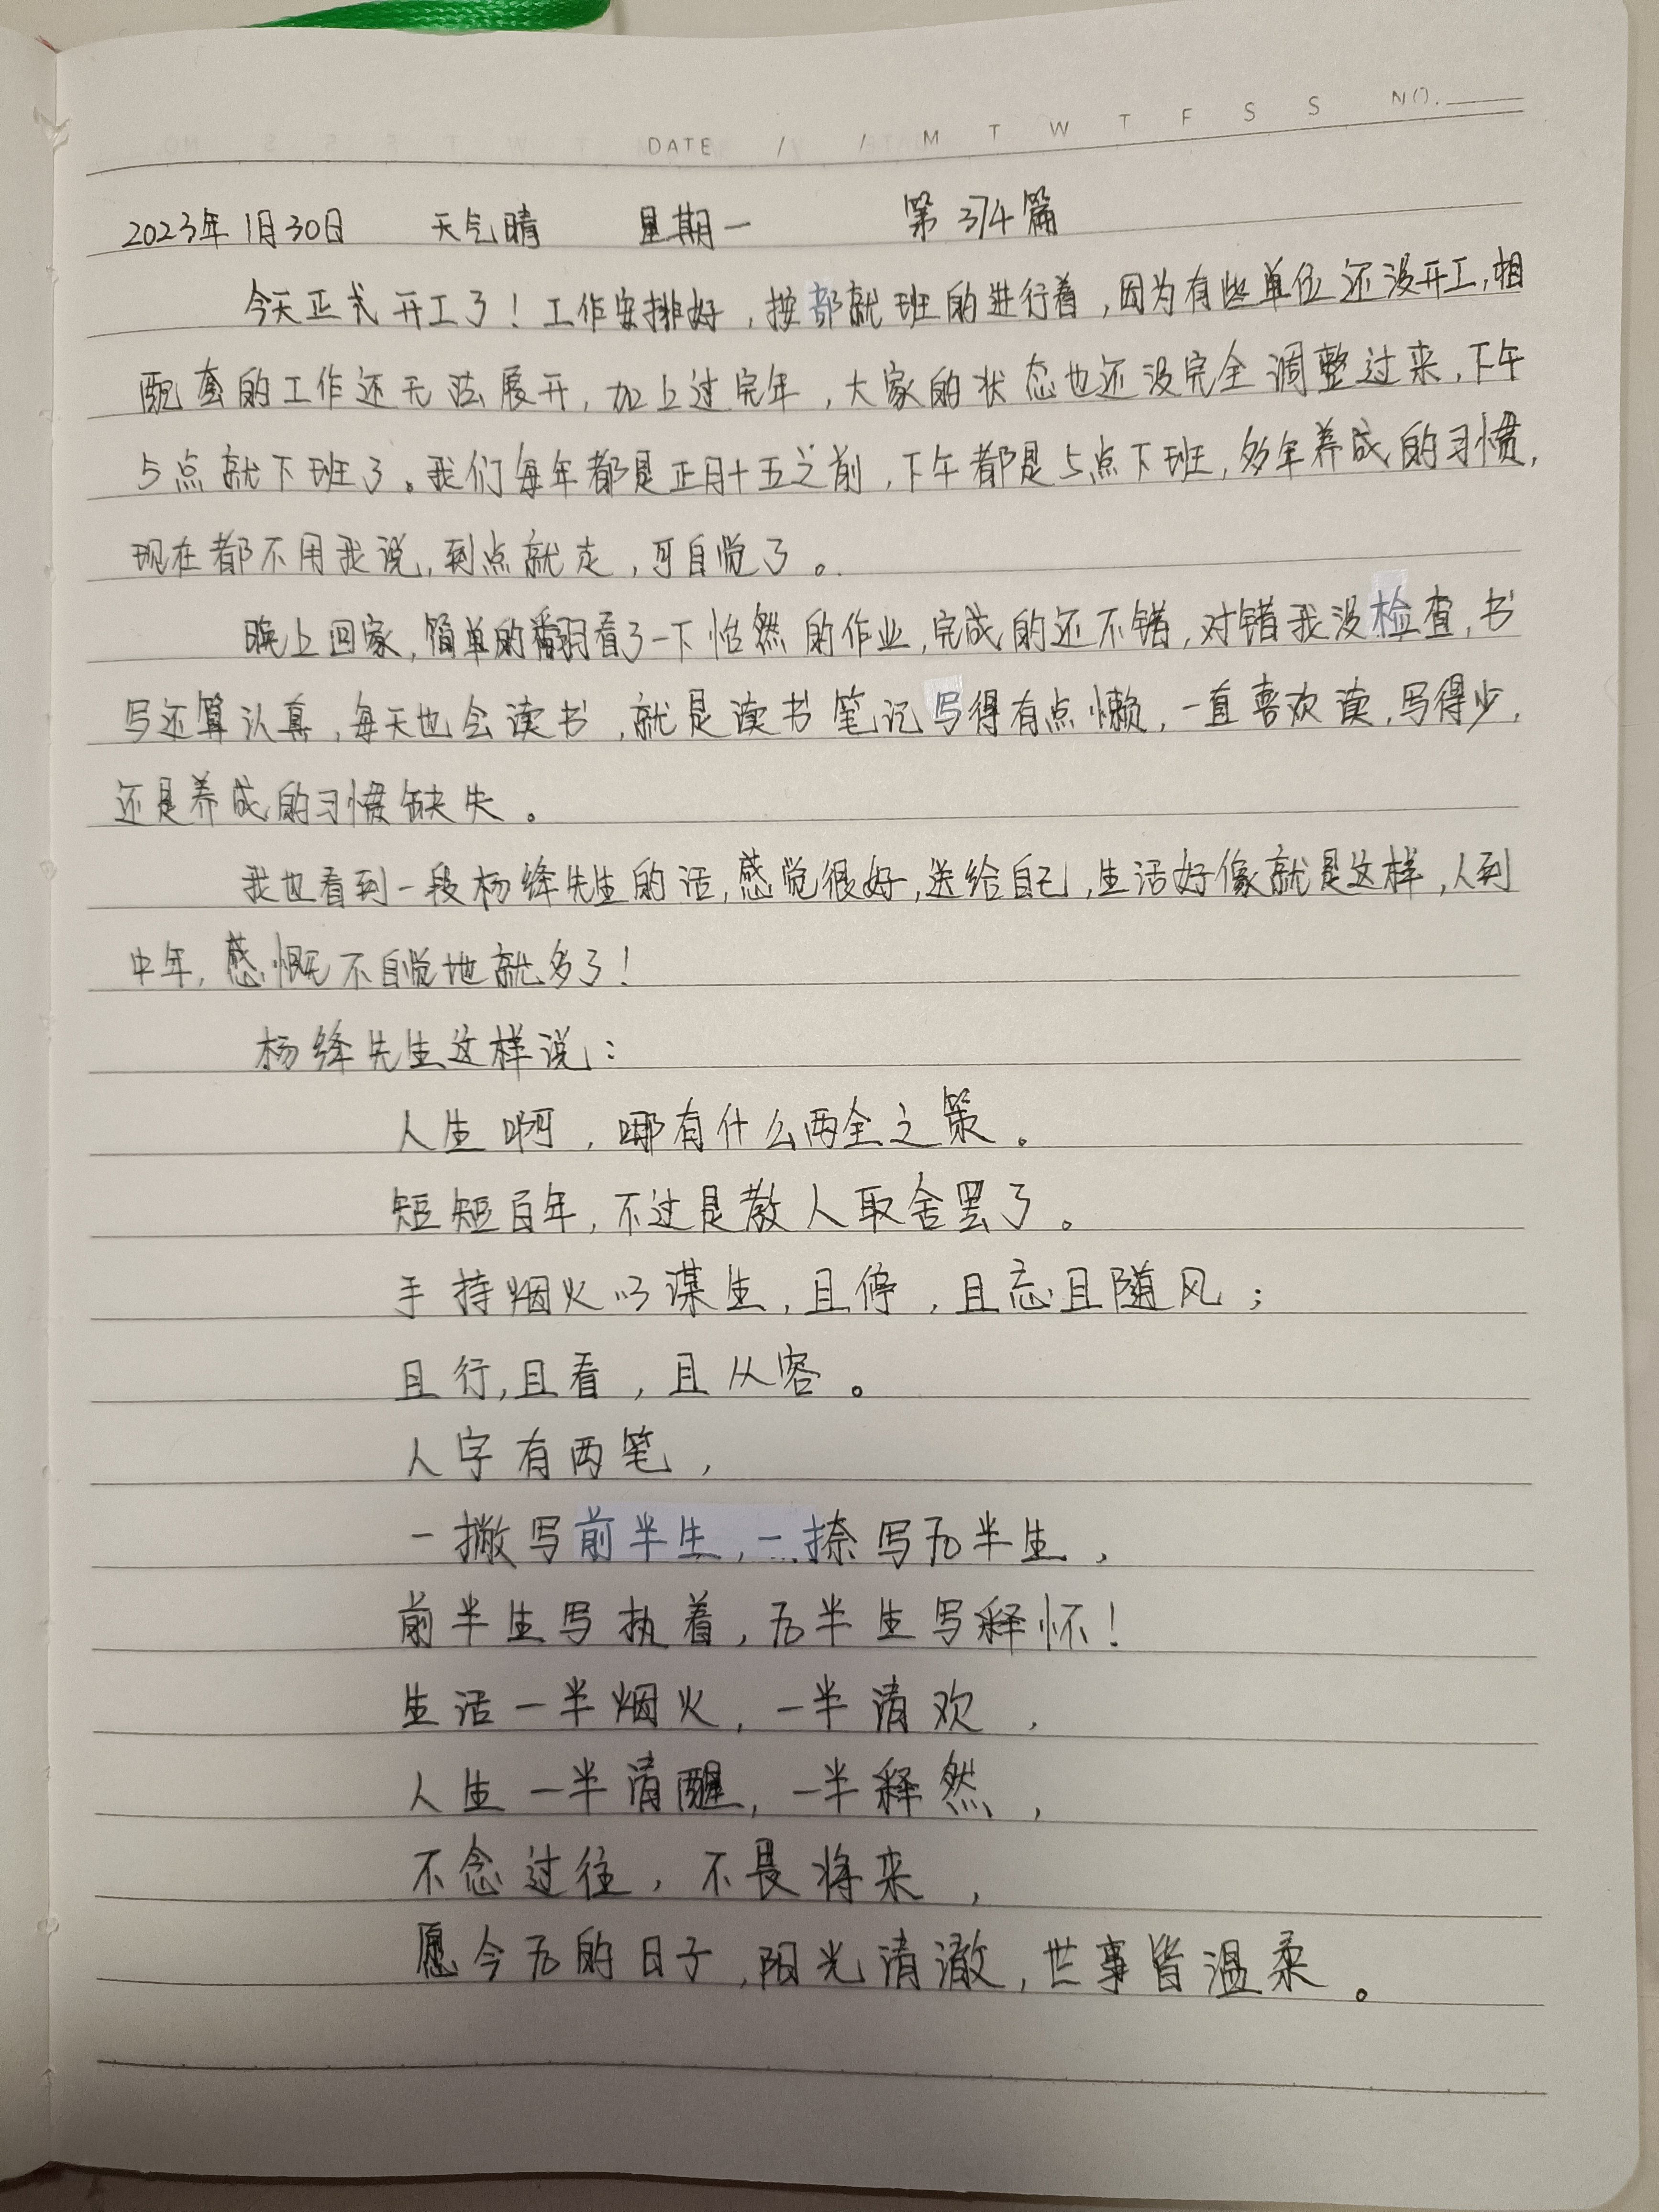 DATE / / M T W T F S S NO.
2023年1月30日 天气晴 星期一 第374篇
今天正式开工了！工作安排好，按部就班的进行着，因为有些单位还没开工，相
配套的工作还无法展开，加上过完年，大家的状态也还没完全调整过来，下午
5点就下班了。我们每年都是正月十五之前，下午都是5点下班，多年养成的习惯，
现在都不用我说，到点就走，可自觉了。
晚上回家，简单的翻看了一下怡然的作业，完成的还不错，对错我没检查，书
写还算认真，每天也会读书，就是读书笔记写得有点懒，一直喜欢读，写得少，
还是养成的习惯缺失。
我也看到一段杨绛先生的话，感觉很好，送给自己，生活好像就是这样，人到
中年，感慨不自觉地就多了！
杨绛先生这样说：
人生啊，哪有什么两全之策。
短短百年，不过是教人取舍罢了。
手持烟火以谋生，且停，且忘且随风；
且行，且看，且从容。
人字有两笔，
一撇写前半生，一捺写后半生，
前半生写执着，后半生写释怀！
生活一半烟火，一半清欢，
人生一半清醒，一半释然，
不念过往，不畏将来，
愿今后的日子，阳光清澈，世事皆温柔。